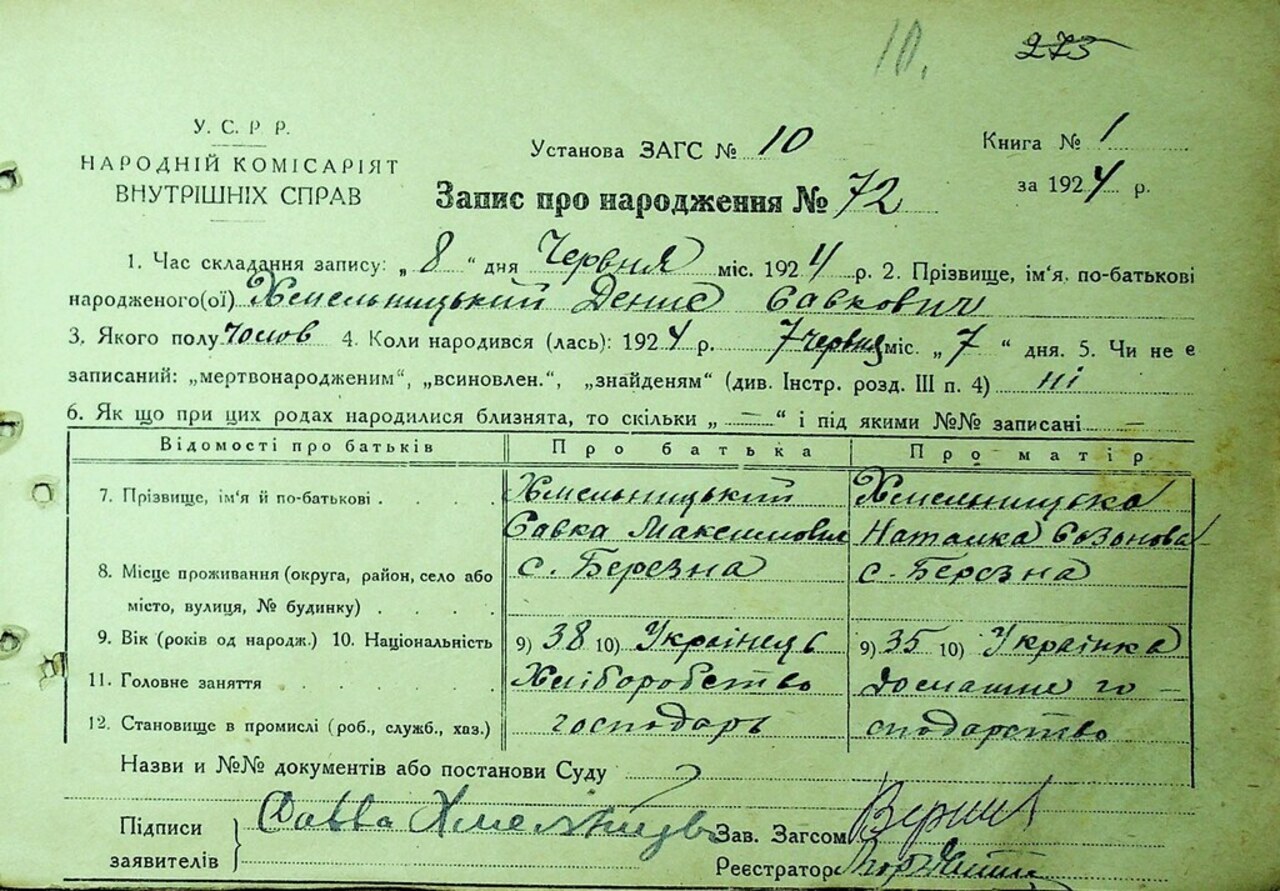 10. 275
У. С. Р Р.
НАРОДНІЙ КОМІСАРІЯТ
ВНУТРІШНІХ СПРАВ
Установа ЗАГС № 10
Книга № 1
за 1924 р.
Запис про народження № 72
1. Час складання запису: „ 8 “ дня Червня міс. 1924 р. 2. Прізвище, ім'я, по-батькові
народженого(ої) Хмельницький Денис Савкович
3. Якого полу Чолов 4. Коли народився (лась): 1924 р. 7 червня міс. „ 7 “ дня. 5. Чи не є
записаний: „мертвонародженим“, „всиновлен.“, „знайденям“ (див. Інстр. розд. III п. 4) ні
6. Як що при цих родах народилися близнята, то скільки „ — “ і під якими №№ записані —
Відомості про батьків Про батька Про матір
7. Прізвище, ім'я й по-батькові . . . . Хмельницький Хмельницька
Савка Максимович Наталка Созонова
8. Місце проживання (округа, район, село або с. Березна с. Березна
місто, вулиця, № будинку) . . . .
9. Вік (років од народж.) 10. Національність 9) 38 10) Українець 9) 35 10) Українка
11. Головне заняття . . . . . . Хліборобство домашне го -
12. Становище в промислі (роб., служб., хаз.) господарь сподарство
Назви и №№ документів або постанови Суду
Підписи
заявителів
Савва
Зав. Загсом
Реєстратор